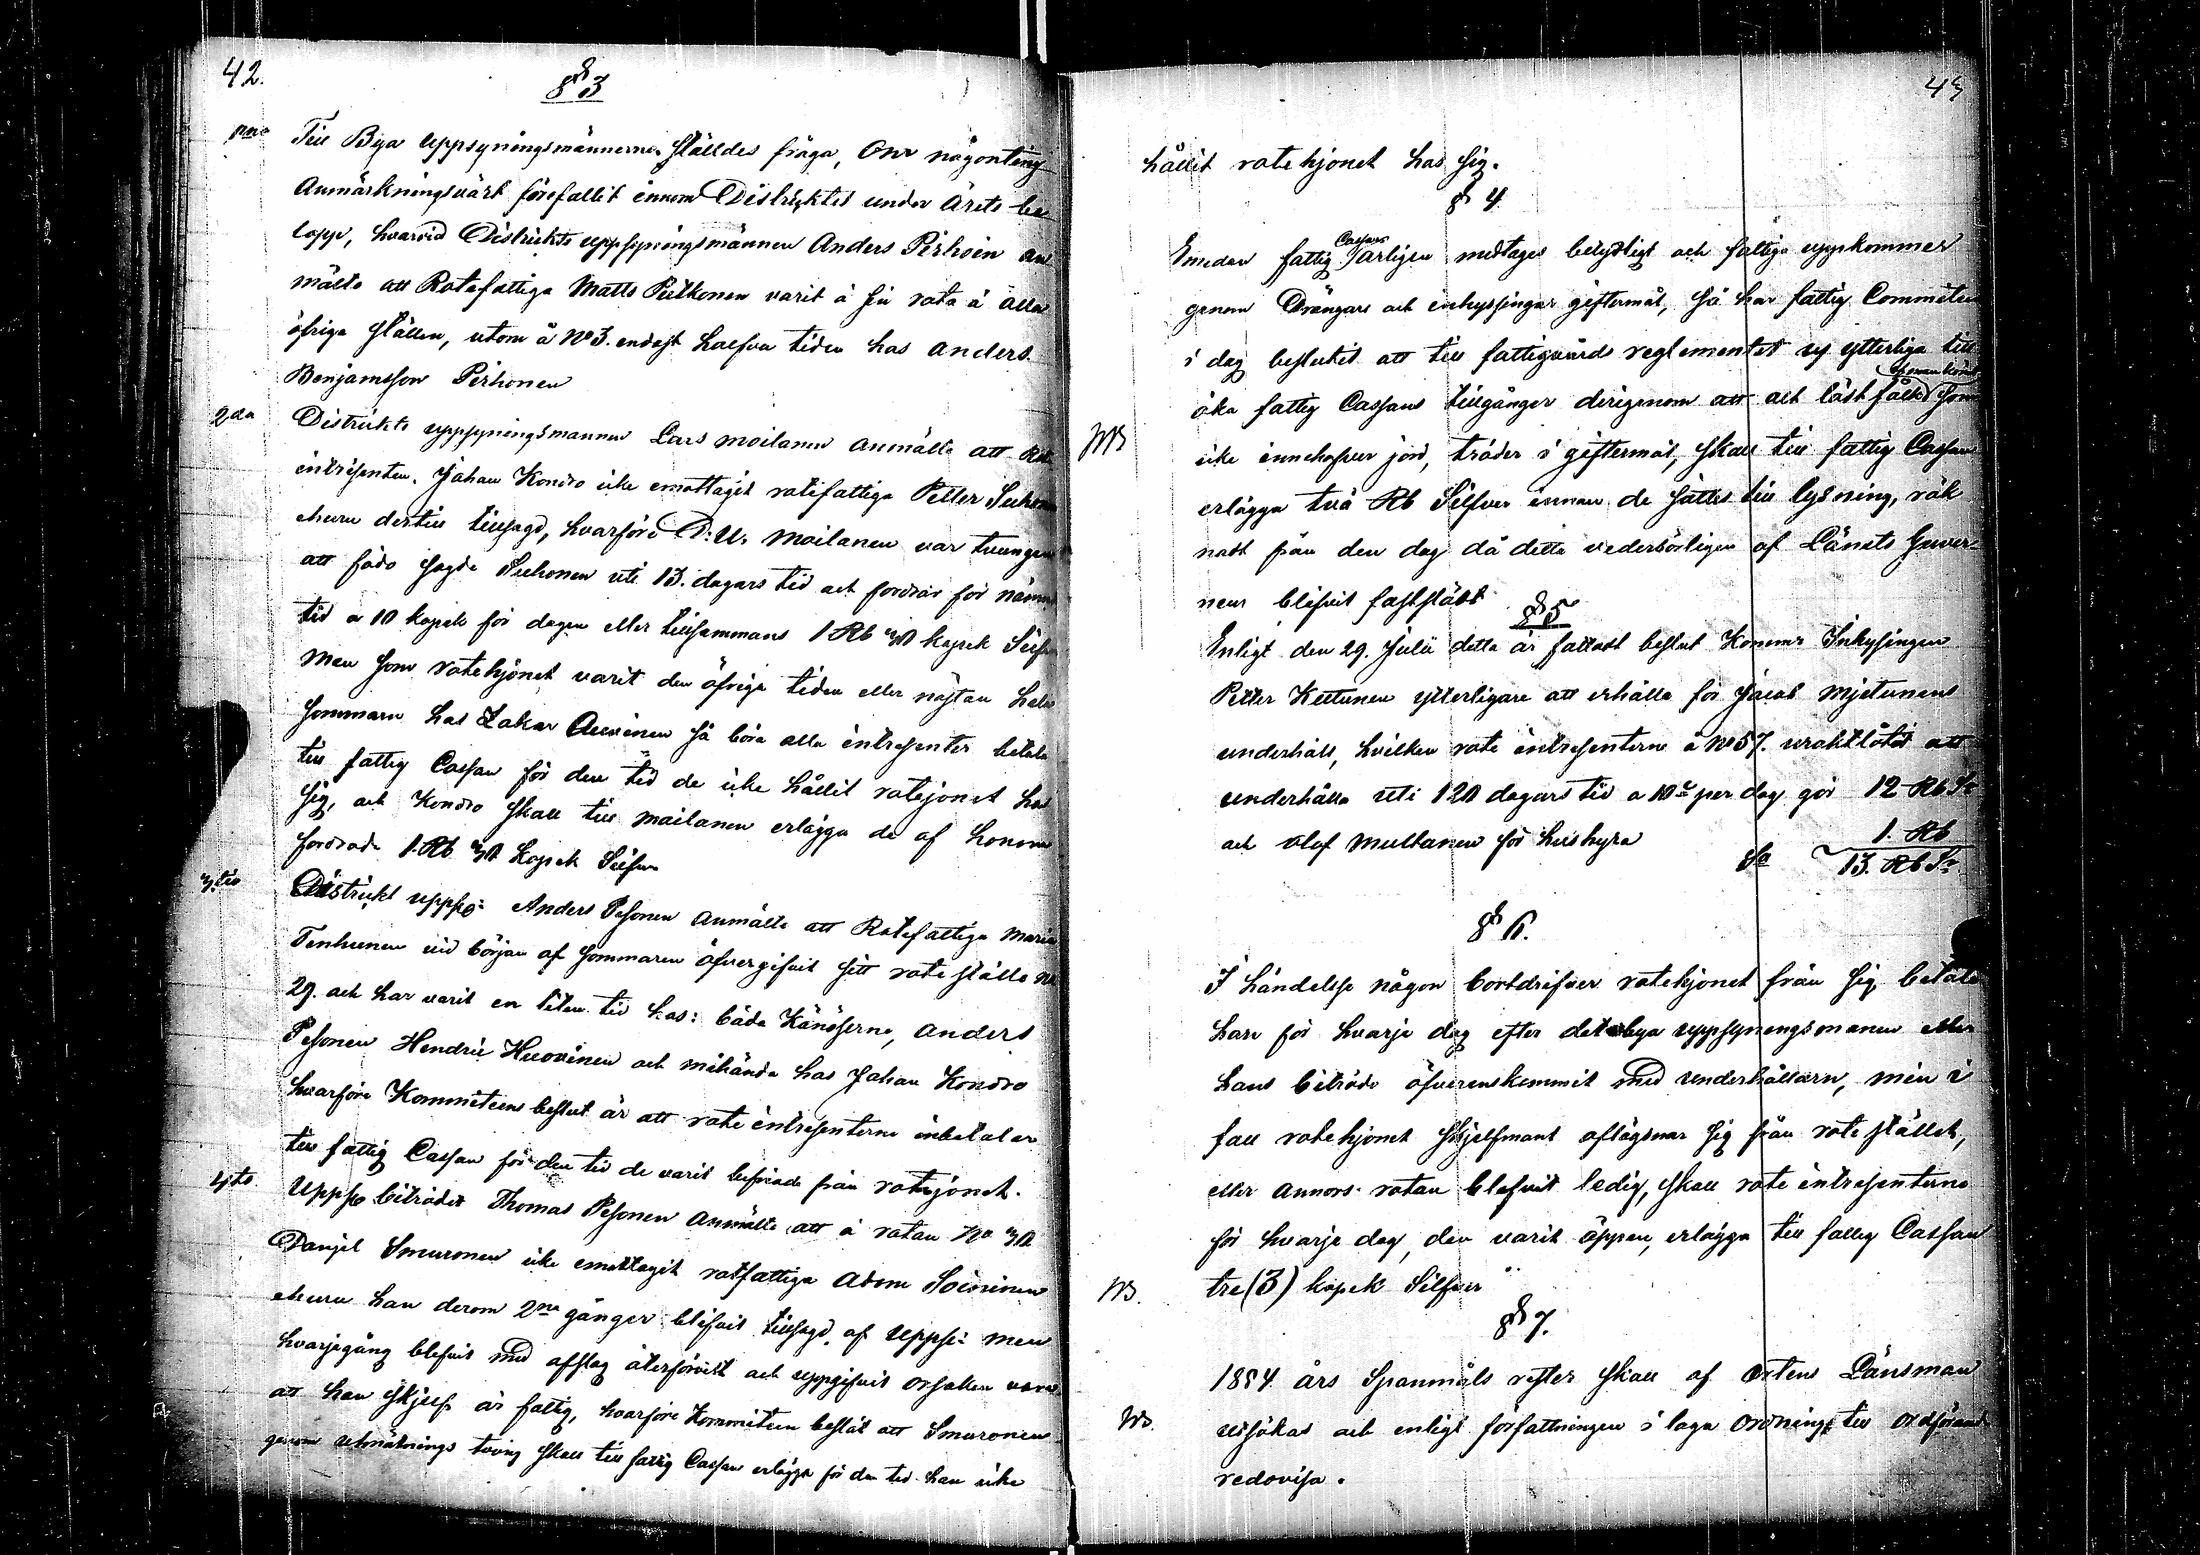 42.
§ 3
1mo Till Bya Uppsyningsmännerne ställdes fråga, Om någonting
Anmärkningsvärt förefallit innom Distriktet under Årets be
lopp, hvarvid Distrikts uppsyningsmannen Anders Pirhoin an
mälte att Rotefattiga Matts Pulkonen varit å sin rota å alla
öfriga ställen, utom å No 3. endast halfva tiden hos Anders
Benjamsson Pirhonen
2do Distrikts uppsyningsmannen Lars Moilanen anmälte att Rote
intresenten, Johan Kondro icke emottagit rotefattiga Petter Suhonen
ehuru dertill tillsagd, hvarföre D: U: Moilanen var tvungen
att föda sagde Suhonen uti 13. dagars tid och fordrar för nämn
tid a 10 kopek för dagen eller tillsammans 1 Rb 30 kopek Silfver
Men som rotehjonet varit den öfriga tiden eller nästan hela
sommarn hos Zakar Auvinen så böra alla intresenter betala
till fattig Cassan för den tid de icke hållit rotejonet hos
sig, och Kondro skall till Moilanen erlägga de af honom
fordrade 1 Rb 30 Kopek Silfver
3tio Distrikt upps: Anders Pesonen anmälte att Rotefattiga Maria
Tenhunen vid början af sommaren öfvergifvit sitt rote ställe No
29. och har varit en liten tid hos: båda Känöserne, Anders
Pesonen Hendric Huovinen och måhända hos Johan Kondro
hvarföre Kommiteens beslut är att rote intresenterne inbetalar
till fattig Cassan för den tid de varit befriade från rotejonet.
4to Upps biträdet Thomas Pesonen anmälte att å rotan No 30
Danjel Smuronen icke emottagit rotfattiga Adam Soininen
ehuru han derom 2ne gånger blifvit tillsagd, af Upps: men
hvarjegång blefvit med afslag återförvist och uppgifvit orsaken vara
att han skjelf är fattig, hvarföre Kommiteen beslöt att Smuronen
genom utmätnings tvång skall till fattig Cassan erlägga för den tid han icke
43
hållit rotehjonet hos sig.
§ 4
Emedan fattig Cassan årligen medtages betydligt och fattiga uppkommer
genom Drängars och inhysingar giftermål, så har fattig Commiteen
i dag beslutit att till fattigvårds reglementet uj ytterliga till
öka fattig Cassans tillgånger derigenom att alt löst fålk som
NB icke innehafver jord, träder i giftermål, skall till fattig Cassan
erlägga två Rb Silfver innan de sättes till lysning, räk
nadt från den dag då detta vederbörligen af Länets Guver-
neur blifvit fastställt
§ 5
Enligt den 29. Julii detta år fattadt beslut Kommer Inhysingen
Petter Kettunen ytterligare att erhålla för Jacob Mjetunens
underhåll, hvilken rote intresenterne å No 57. uraktlåtit att
underhålla uti 120 dagars tid a 10 per dag gör 12 Rb Sr
och Olof Multanen för hushyra 1. Rb
Sa 13. Rb Sr
§ 6.
I händelse någon bortdrifver rotehjonet från sig betale
han för hvarje dag efter det bya uppsyningsmanen eller
hans biträde öfverenskommit med underhållarn, men i
fall rotehjonet skjelfmant aflägsnar sig från rote stället,
eller annors rotan blefvit ledig, skall rote intresenterne
för hvarje dag, den varit öppen, erlägga till fattig Cassan
NB. tre (3) kopek Silfver
§ 7.
1854 års Spanmåls rester skall af Ortens Länsman
NB. utsökas och enligt författningen i laga ordning till Ordförand
redovisa.